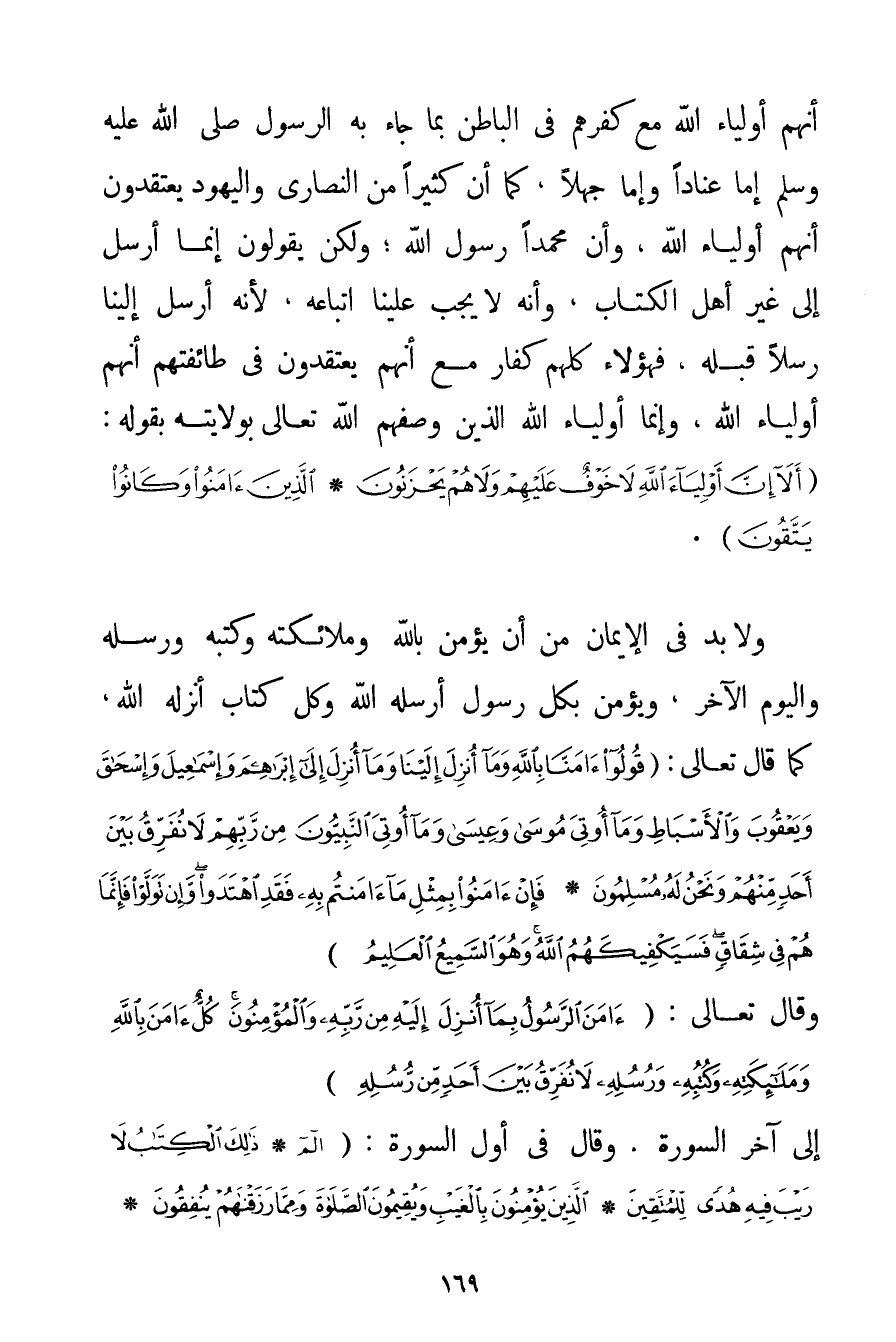 أنهم أولياء الله مع كفرهم فى الباطن بما جاء به الرسول صلى الله عليه
وسلم إما عناداً وإما جهلاً ، كما أن كثيراً من النصارى واليهود يعتقدون
أنهم أوليـاء الله ، وأن محمداً رسول الله ؛ ولكن يقولون إنمـا أرسل
إلى غير أهل الكتـاب ، وأنه لا يجب علينا اتباعه ، لأنه أرسل إلينا
رسلاً قبـله ، فهؤلاء كلهم كفار مـع أنهم يعتقدون فى طائفتهم أنهم
أوليـاء الله ، وإنما أوليـاء الله الذين وصفهم الله تعـالى بولايتـه بقوله :
( أَلَآ إِنَّ أَوْلِيَآءَ ٱللَّهِ لَا خَوْفٌ عَلَيْهِمْ وَلَا هُمْ يَحْزَنُونَ * ٱلَّذِينَ ءَامَنُوا۟ وَكَانُوا۟
يَتَّقُونَ ) .
ولا بد فى الإيمان من أن يؤمن بالله وملائـكته وكتبه ورسـله
واليوم الآخر ، ويؤمن بكل رسول أرسله الله وكل كتاب أنزله الله ،
كما قال تعـالى : ( قُولُوٓا۟ ءَامَنَّا بِٱللَّهِ وَمَآ أُنزِلَ إِلَيْنَا وَمَآ أُنزِلَ إِلَىٰٓ إِبْرَٰهِـۧمَ وَإِسْمَٰعِيلَ وَإِسْحَٰقَ
وَيَعْقُوبَ وَٱلْأَسْبَاطِ وَمَآ أُوتِىَ مُوسَىٰ وَعِيسَىٰ وَمَآ أُوتِىَ ٱلنَّبِيُّونَ مِن رَّبِّهِمْ لَا نُفَرِّقُ بَيْنَ
أَحَدٍ مِّنْهُمْ وَنَحْنُ لَهُۥ مُسْلِمُونَ * فَإِنْ ءَامَنُوا۟ بِمِثْلِ مَآ ءَامَنتُم بِهِۦ فَقَدِ ٱهْتَدَوا۟ۖ وَّإِن تَوَلَّوْا۟ فَإِنَّمَا
هُمْ فِى شِقَاقٍۖ فَسَيَكْفِيكَهُمُ ٱللَّهُۚ وَهُوَ ٱلسَّمِيعُ ٱلْعَلِيمُ )
وقال تعـالى : ( ءَامَنَ ٱلرَّسُولُ بِمَآ أُنزِلَ إِلَيْهِ مِن رَّبِّهِۦ وَٱلْمُؤْمِنُونَۚ كُلٌّ ءَامَنَ بِٱللَّهِ
وَمَلَٰٓئِكَتِهِۦ وَكُتُبِهِۦ وَرُسُلِهِۦ لَا نُفَرِّقُ بَيْنَ أَحَدٍ مِّن رُّسُلِهِ )
إلى آخر السورة . وقال فى أول السورة : ( الٓمٓ * ذَٰلِكَ ٱلْكِتَٰبُ لَا
رَيْبَ فِيهِ هُدًى لِّلْمُتَّقِينَ * ٱلَّذِينَ يُؤْمِنُونَ بِٱلْغَيْبِ وَيُقِيمُونَ ٱلصَّلَوٰةَ وَمِمَّا رَزَقْنَٰهُمْ يُنفِقُونَ *
١٦٩